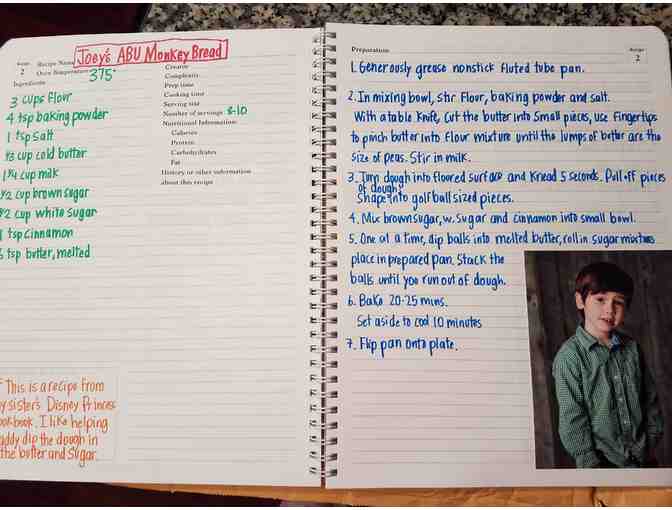 Recipe
2
Recipe Name Joey's ABU Monkey Bread
Oven Temperature 375°
Ingredients
3 cups flour
4 tsp baking powder
1 tsp salt
⅓ cup cold butter
1¼ cup milk
½ cup brown sugar
½ cup white sugar
1 tsp cinnamon
tsp butter, melted
Course
Complexity
Prep time
Cooking time
Serving size
Number of servings 8-10
Nutritional Information:
Calories
Protein
Carbohydrates
Fat
History or other information
about this recipe
This is a recipe from
y sister's Disney Princess
ookbook. I like helping
addy dip the dough in
the butter and sugar.
Preparation
Recipe
2
1. Generously grease nonstick fluted tube pan.
2. In mixing bowl, stir flour, baking powder and salt.
With a table knife, cut the butter into small pieces, use fingertips
to pinch butter into flour mixture until the lumps of butter are the
size of peas. Stir in milk.
3. Turn dough into floured surface and knead 5 seconds. Pull off pieces
of dough,
Shape into golf ball sized pieces.
4. Mix brown sugar, w. sugar and cinnamon into small bowl.
5. One at a time, dip balls into melted butter, roll in sugar mixture
place in prepared pan. Stack the
balls until you run out of dough.
6. Bake 20-25 mins.
Set aside to cool 10 minutes
7. Flip pan onto plate.